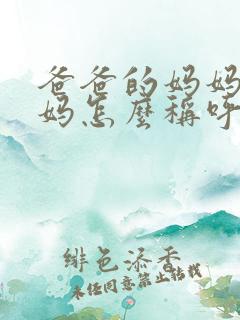 爸爸的妈妈
妈怎麼稱呼
绯色添香
未经同意禁止转载